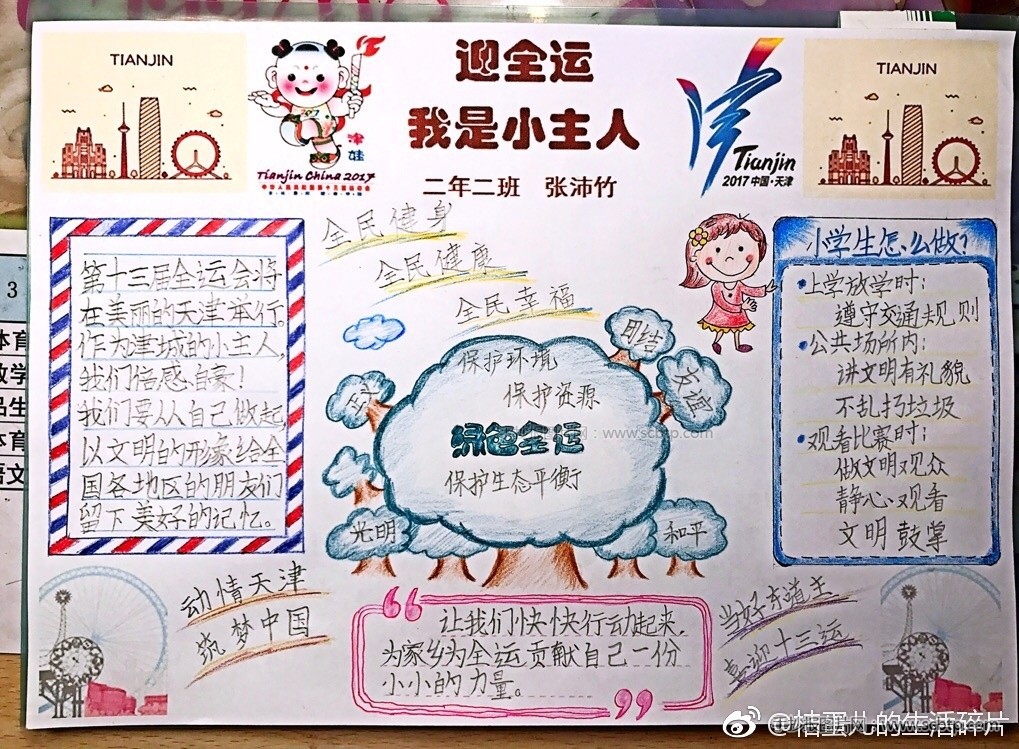 TIANJIN
津娃
Tianjin China 2017
中华人民共和国第十三届运动会
迎全运
我是小主人
二年二班 张沛竹
Tianjin
2017中国·天津
TIANJIN
全民健身
全民健康
全民幸福
第十三届全运会将
在美丽的天津举行。
作为津城的小主人,
我们倍感自豪!
我们要从自己做起
以文明的形象给全
国各地区的朋友们
留下美好的记忆。
保护环境
保护资源
绿色全运
www.scbtp.com
保护生态平衡
团结
友谊
光明
和平
小学生怎么做?
上学放学时:
遵守交通规则
公共场所内:
讲文明有礼貌
不乱扔垃圾
观看比赛时:
做文明观众
静心观看
文明鼓掌
动情天津
筑梦中国
让我们快快行动起来,
为家乡为全运贡献自己一份
小小的力量。
当好东道主
喜迎十三运
3
体育
数学
品生
体育
语文
@桔蛋儿的生活碎片
www.scbtp.com